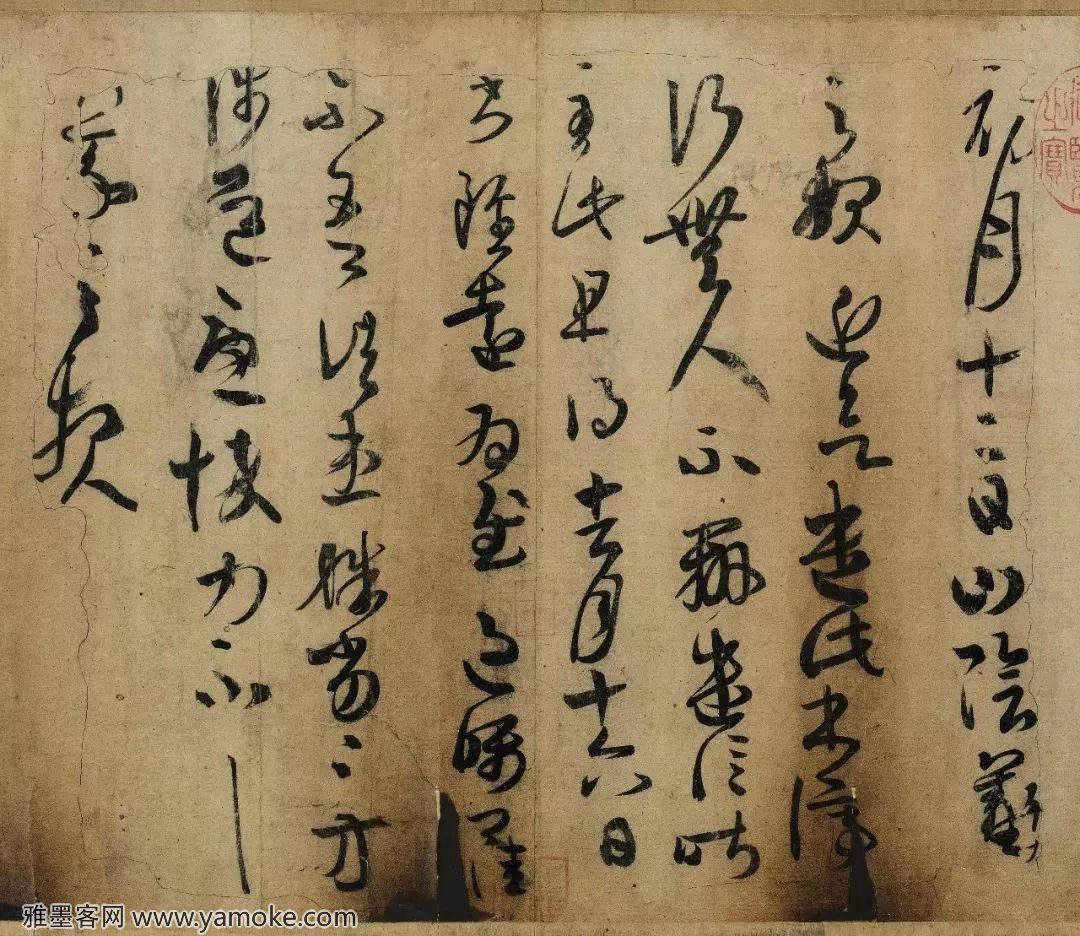 初月十二日山陰羲
之報近欲遣此書停
行無人不辦遣信昨
至此且得去月十六日
書雖遠為慰過囑卿佳
不吾諸患殊劣〻方
涉道憂悴力不具
羲之報
之寶
雅墨客网 www.yamoke.com